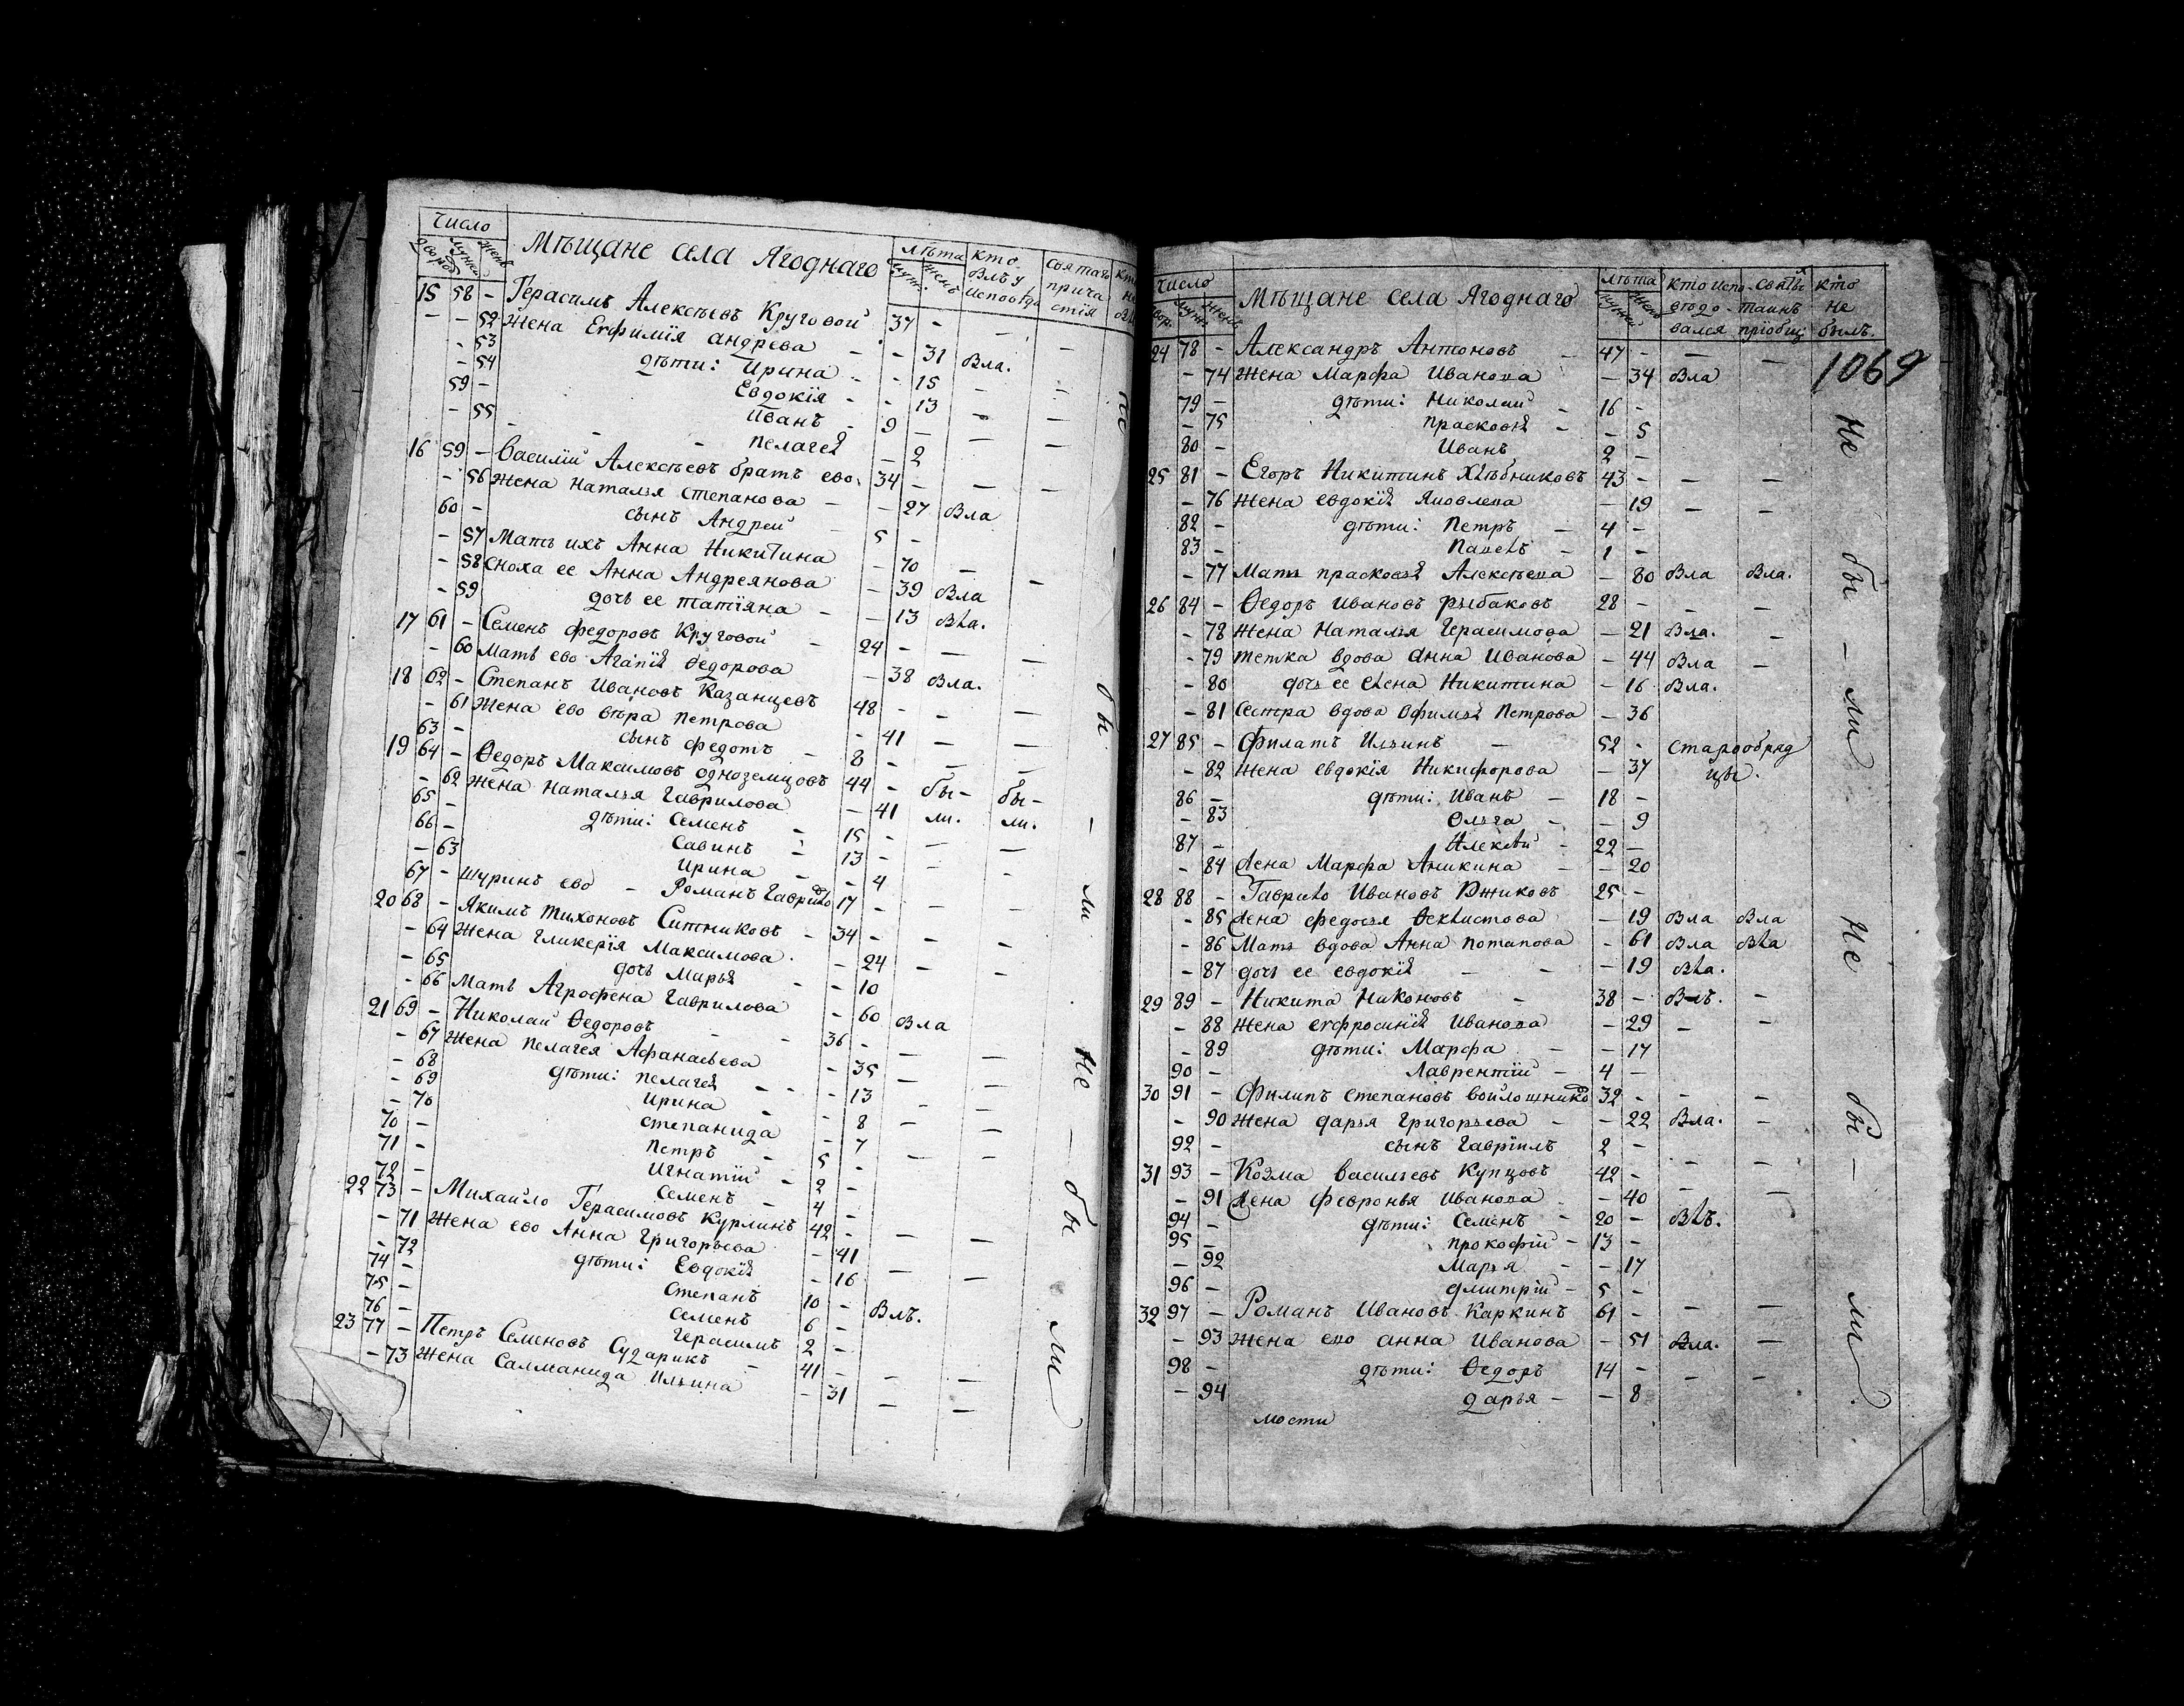 Число Мѣщане села Ягоднаго лѣта кто былъ у исповѣда святаго причастія
дворов мужч женс мужч женс
15 58 – Герасимъ Алексѣевъ Круговой 37 – – –
– – 52 Жена Евфимїя андрева – – 31 была.
– 53 дѣти: Ирина – – 15
– 54 Евдокїя – – 13
59 – Иванъ – 9 –
– 55 Пелагея – 2
16 59 – Василїй Алексѣевъ братъ ево. 34 –
– 56 Жена Наталья Степанова – – 27 была
60 – сынъ Андрей 5 –
– 57 Мать ихъ Анна Никитина – 70 –
– 58 Сноха ее Анна Андреянова – 39 была
– 59 дочь ее Татїяна – – 13 была.
17 61 – Семенъ Федоровъ Круговой – 24 –
– 60 Мать ево Агапїя Ѳедорова – 38 была.
18 62 – Степанъ Ивановъ Казанцевъ 48 –
– 61 Жена ево вѣра Петрова – 41 –
63 – сынъ Федотъ – 8 –
19 64 – Ѳедоръ Максимовъ одноземцовъ 44 – бы– бы–
– 62 Жена Наталья Гаврилова – 41 ли. ли.
65 – дѣти: Семенъ – 15 –
66 – Савинъ – 13 –
– 63 Ирина – – 4
67 – шуринъ ево – Романъ Гаврилов 17 –
20 68 – Якимъ Тихоновъ Ситниковъ – 34 –
– 64 Жена Гликерїя Максимова. – 24
– 65 дочь Марья – – 10
– 66 Мать Агрофена Гаврилова – 60 была
21 69 – Николай Ѳедоровъ – – 36 –
– 67 Жена Пелагея Афанасьева – 35
– 68 дѣти: Пелагея – – 13
– 69 Ирина – – 8
– 70 Степанида – 7
70 – Петръ – 5 –
71 – Игнатїй – 2 –
72 – Семенъ – 4 –
22 73 – Михайло Герасимовъ Курлинъ 42 –
– 71 Жена ево Анна Григорьева – 41
– 72 дѣти: Евдокїя – 16
74 – Степанъ 10 – былъ.
75 – Семенъ 6 –
76 – Герасимъ 2 –
23 77 – Петръ Семеновъ Сударикъ – 41 –
– 73 Жена Салманида Ильина – 31
не – бы – ли не – бы ли
Число Мѣщане села Ягоднаго лѣта кто исповѣдовался святыхъ таинъ прїобщ кто не былъ.
24 78 – Александръ Антоновъ – 47 – – –
– 74 Жена Марфа Иванова – 34 была
1069
79 – дѣти: Николай – 16 –
– 75 Прасковья – – 5
80 – Иванъ 2 –
25 81 – Егоръ Никитинъ Хлѣбниковъ 43 – – –
– 76 Жена евдокїя Яковлева – 19 – –
82 – дѣти: Петръ – 4 –
83 – Павелъ – 1 –
– 77 Мать прасковья Алексѣева – 80 была была.
26 84 – Ѳедоръ Ивановъ рыбаковъ 28 – – –
– 78 Жена Наталья Герасимова – 21 была. –
– 79 Тетка вдова анна Иванова – 44 была –
– 80 дочь ее елена Никитина – 16 была.
– 81 Сестра вдова Офимья Петрова – 36
27 85 – Филатъ Ильинъ – 52 – старообряд
– 82 Жена евдокїя Никифорова – 37 цы.
86 – дѣти: Иванъ – 18 –
– 83 Ольга – – 9
87 – Алексѣй – 22 –
– 84 жена Марфа Аникина – – 20
28 88 – Гаврило Ивановъ 25 –
– 85 жена федосья Ѳеклистова – 19 была была
– 86 Мать вдова Анна потапова – 61 была была
– 87 дочь ее евдокїя – – – 19 была.
29 89 – Никита Никоновъ – 38 – былъ. –
– 88 Жена евфросинїя Иванова – 29 – –
– 89 дѣти: Марфа – – 17
90 – Лаврентїй – 4 –
30 91 – Филипъ Степановъ войлошников 32 – – –
– 90 Жена дарья Григорьева – – 22 была. –
92 – сынъ Гаврїилъ 2 –
31 93 – Козма васильевъ Купцовъ 42 – – –
– 91 жена февронья Иванова – – 40 – –
94 – дѣти: Семенъ – 20 – былъ.
95 – прокофїй – 13 –
– 92 Марья – – 17
96 – дмитрїй – 5 –
32 97 – Романъ Ивановъ Каркинъ 61 – – –
– 93 Жена ево анна Иванова – 51 была. –
98 – дѣти: Ѳедоръ 14 – – –
– 94 дарья – – 8
мости
Не бы – ли Не бы – ли